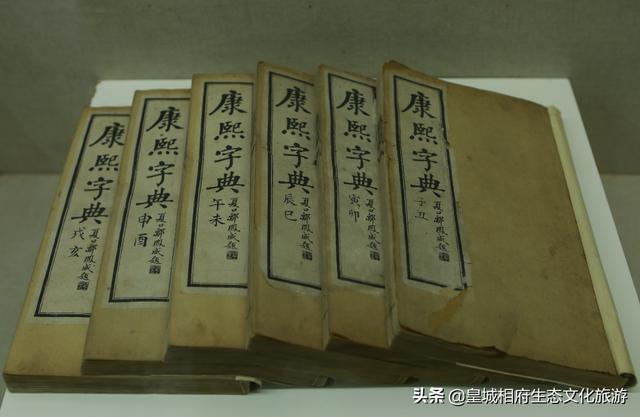 康熙字典
子丑
夏口鄭鳳 題
康熙字典
寅卯
夏口鄭鳳 題
康熙字典
辰巳
夏口鄭鳳 題
康熙字典
午未
夏口鄭鳳 題
康熙字典
申酉
夏口鄭鳳 題
康熙字典
戌亥
夏口鄭鳳 題
头条 @皇城相府生态文化旅游